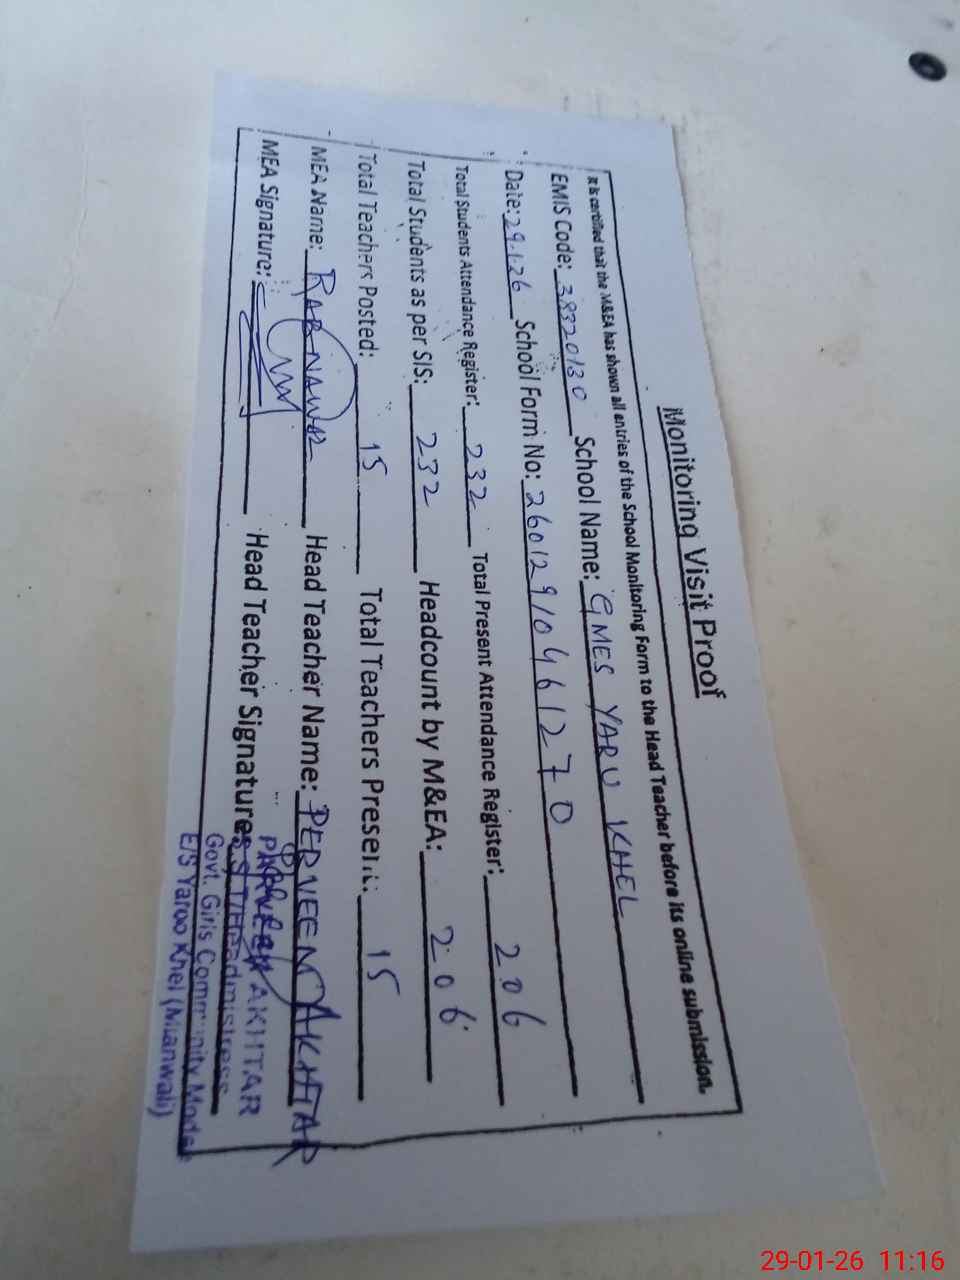 Monitoring Visit Proof
It is certified that the M&EA has shown all entries of the School Monitoring Form to the Head Teacher before its online submission.
EMIS Code: 38320130 School Name: GMES YARU KHEL
Date: 29.1.26 School Form No: 26012910461270
Total Students Attendance Register: 232 Total Present Attendance Register: 206
Total Students as per SIS: 232 Headcount by M&EA: 206
Total Teachers Posted: 15 Total Teachers Present: 15
MEA Name: RAB NAWAZ Head Teacher Name: PERVEEN AKHTAR
MEA Signature: Head Teacher Signature:
PARVEEN AKHTAR
SST/Headmistress
Govt. Girls Community Model
E/S Yaroo Khel (Mianwali)
29-01-26 11:16